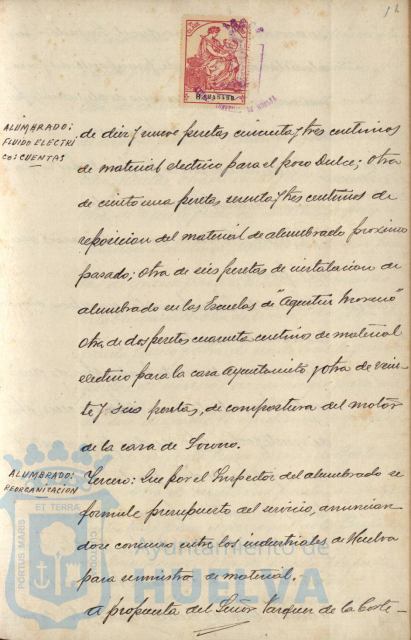 12
ALUMBRADO:
FLUIDO ELECTRI
CO: CUENTAS
de diez y nueve pesetas cincuenta y tres centimos
de material electrico para el pozo Dulce; otra
de ciento una pesetas sesenta y tres centimos de
reposicion del material de alumbrado proximo
pasado; otra de seis pesetas de instalacion de
alumbrado en las Escuelas de "Agustin Moreno"
otra, de dos pesetas cuarenta centimos de material
electrico para la casa Ayuntamiento y otra de vein-
te y seis pesetas, de compostura del motor
de la casa de Socorro.
ALUMBRADO:
REORGANIZACION
Tercero: Que por el Inspector del alumbrado se
formule presupuesto del servicio, anuncian
dose concurso entre los industriales de Huelva
para suministro de material.
A propuesta del Señor Vazquez de la Corte-
PORTUS MARIS
ET TERRÆ
CUSTODIA
Ayuntamiento de
HUELVA